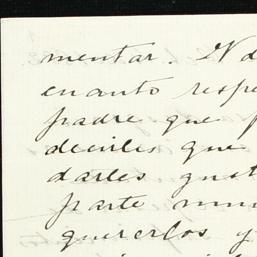 mentar. Nd
cuanto respe
padre que p
deciles que
darles gust
parte nun
quererlos y